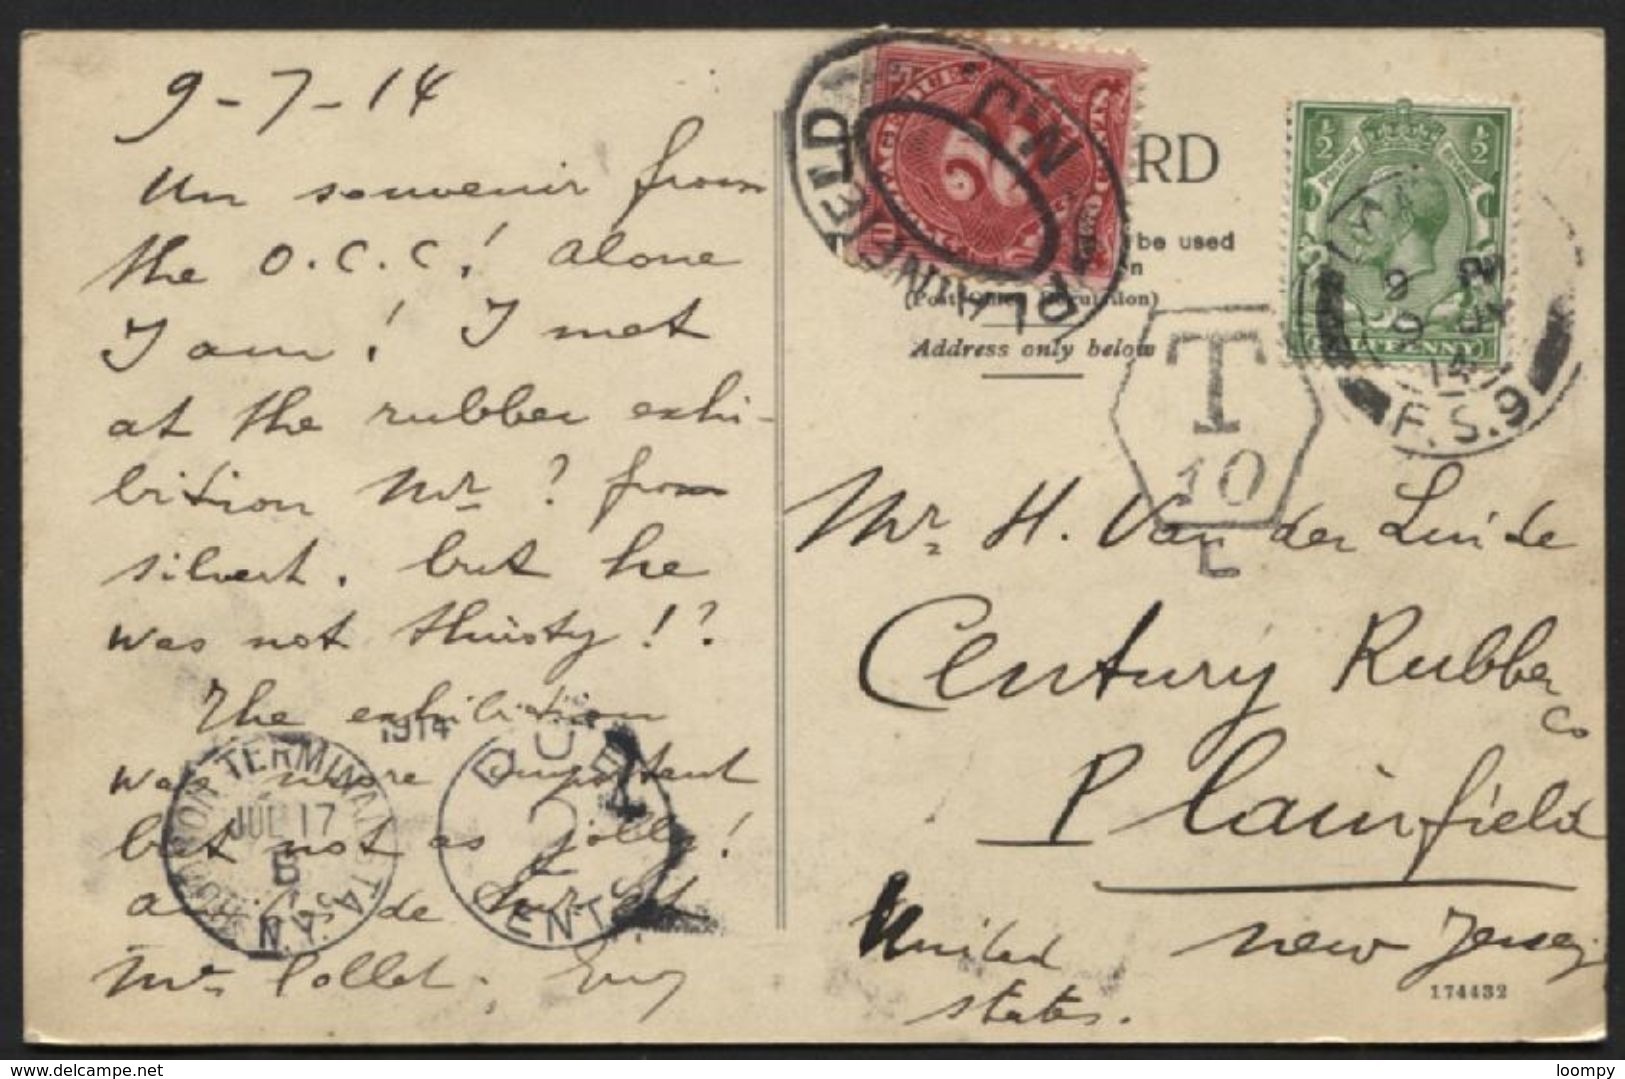 9-7-14
Un souvenir from
the O.C.C! alone
I am! I met
at the rubber exhi-
bition Mr ? from
silvert. but he
was not thirsty!?
The exhibition
was more important
but not as jolly!
de
Mr Collet.
1914
HUDSON TERMINAL STA.
JUL 17
5
N.Y.
DUE
2
CENTS
PLAINFIELD
N.J.
2
RD
be used
n
(Post Office Regulation)
Address only below
½ ½
HALFPENNY
9 JY
14
F.S.9
T
10
L
Mr. H. Van der Linde
Century Rubber
Co
Plainfield
New Jersey
United
States.
174432
delcampe.net
loompy